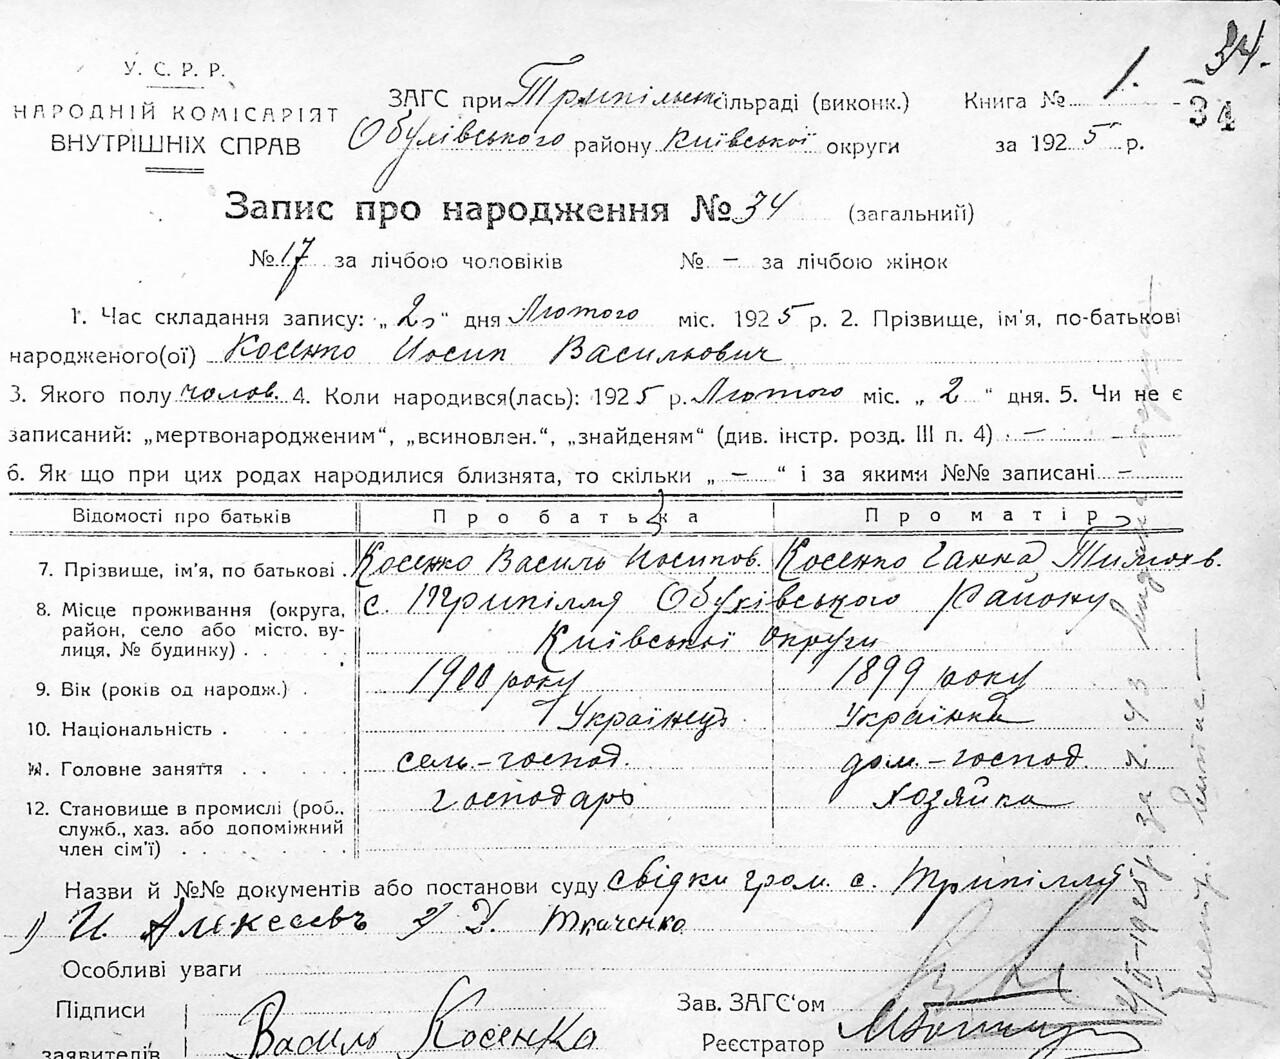 34.
34
У. С. Р. Р.
НАРОДНІЙ КОМІСАРІЯТ
ВНУТРІШНІХ СПРАВ
ЗАГС при Трипільськ сільраді (виконк.)
Обухівського району Київської округи
Книга № 1.
за 1925 р.
Запис про народження № 34 (загальний)
№ 17 за лічбою чоловіків № – за лічбою жінок
1. Час складання запису: „2“ дня Лютого міс. 1925 р. 2. Прізвище, ім'я, по-батькові
народженого(ої) Косенко Иосип Васильович
3. Якого полу чолов. 4. Коли народився(лась): 1925 р. Лютого міс. „ 2 “ дня. 5. Чи не є
записаний: „мертвонародженим“, „всиновлен.“, „знайденям“ (див. інстр. розд. III п. 4) –
6. Як що при цих родах народилися близнята, то скільки „ – “ і за якими №№ записані –
Відомості про батьків Про батька Про матір
7. Прізвище, ім'я, по батькові . Косенко Василь Иосипов. Косенко Ганна Тимохв.
8. Місце проживання (округа, с. Трипілля Обухівського Району
район, село або місто, ву-
лиця, № будинку) . . . . Київської округи
9. Вік (років од народж.) . 1900 року 1899 року
10. Національність . . . . . Українець Українка
11. Головне заняття . . . . . сель.-господ. дом.-господ.
12. Становище в промислі (роб., господарь хозяйка
служб., хаз. або допоміжний
член сім'ї) . . . . . . . .
Назви й №№ документів або постанови суду свідки гром. с. Трипілля
1) И. Алексеевъ 2) Д. Ткаченко
Особливі уваги
Підписи
заявителів Василь Косенко
Зав. ЗАГС'ом
Реєстратор